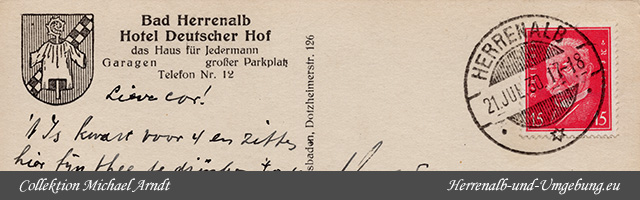 Bad Herrenalb
Hotel Deutscher Hof
das Haus für Jedermann
Garagen großer Parkplatz
Telefon Nr. 12
Lieve Cor!
't Is kwart voor 4 en zitten
hier fijn thee te drinken
sbaden, Dotzheimerstr. 126
HERRENALB
21.JUL.30.17-18
15 15
Collektion Michael Arndt
Herrenalb-und-Umgebung.eu